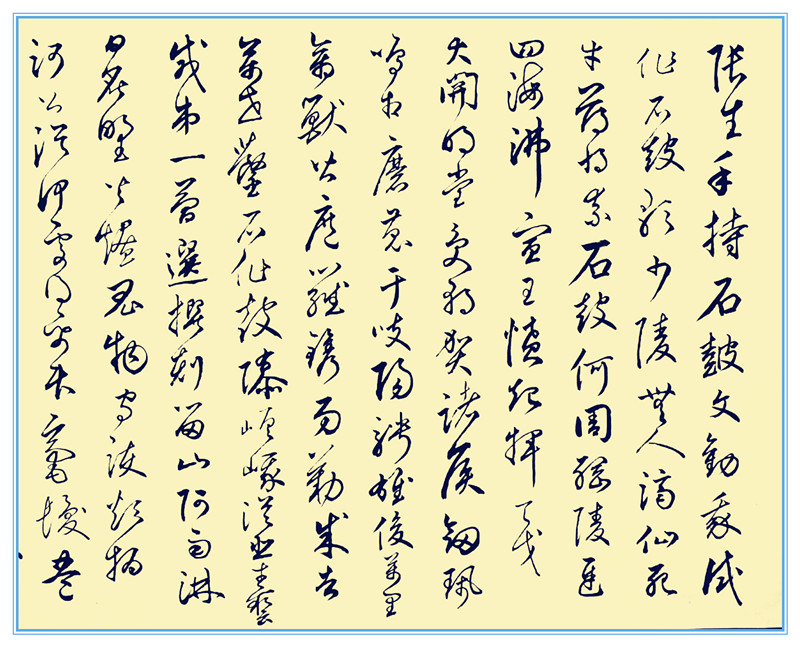 張生手持石鼓文勸我試
作石鼓歌少陵無人謫仙死
才薄將奈石鼓何周綱陵遲
四海沸宣王憤起揮天戈
大開明堂受朝賀諸侯劒珮
鳴相磨蒐于岐陽騁雄俊萬里
禽獸皆遮羅鐫功勒成告
萬世鑿石作鼓隳嵯峨從臣才藝
咸第一簡選撰刻留山阿雨淋
日炙野火燎鬼物守護煩撝
訶公從何處得紙本毫髮盡